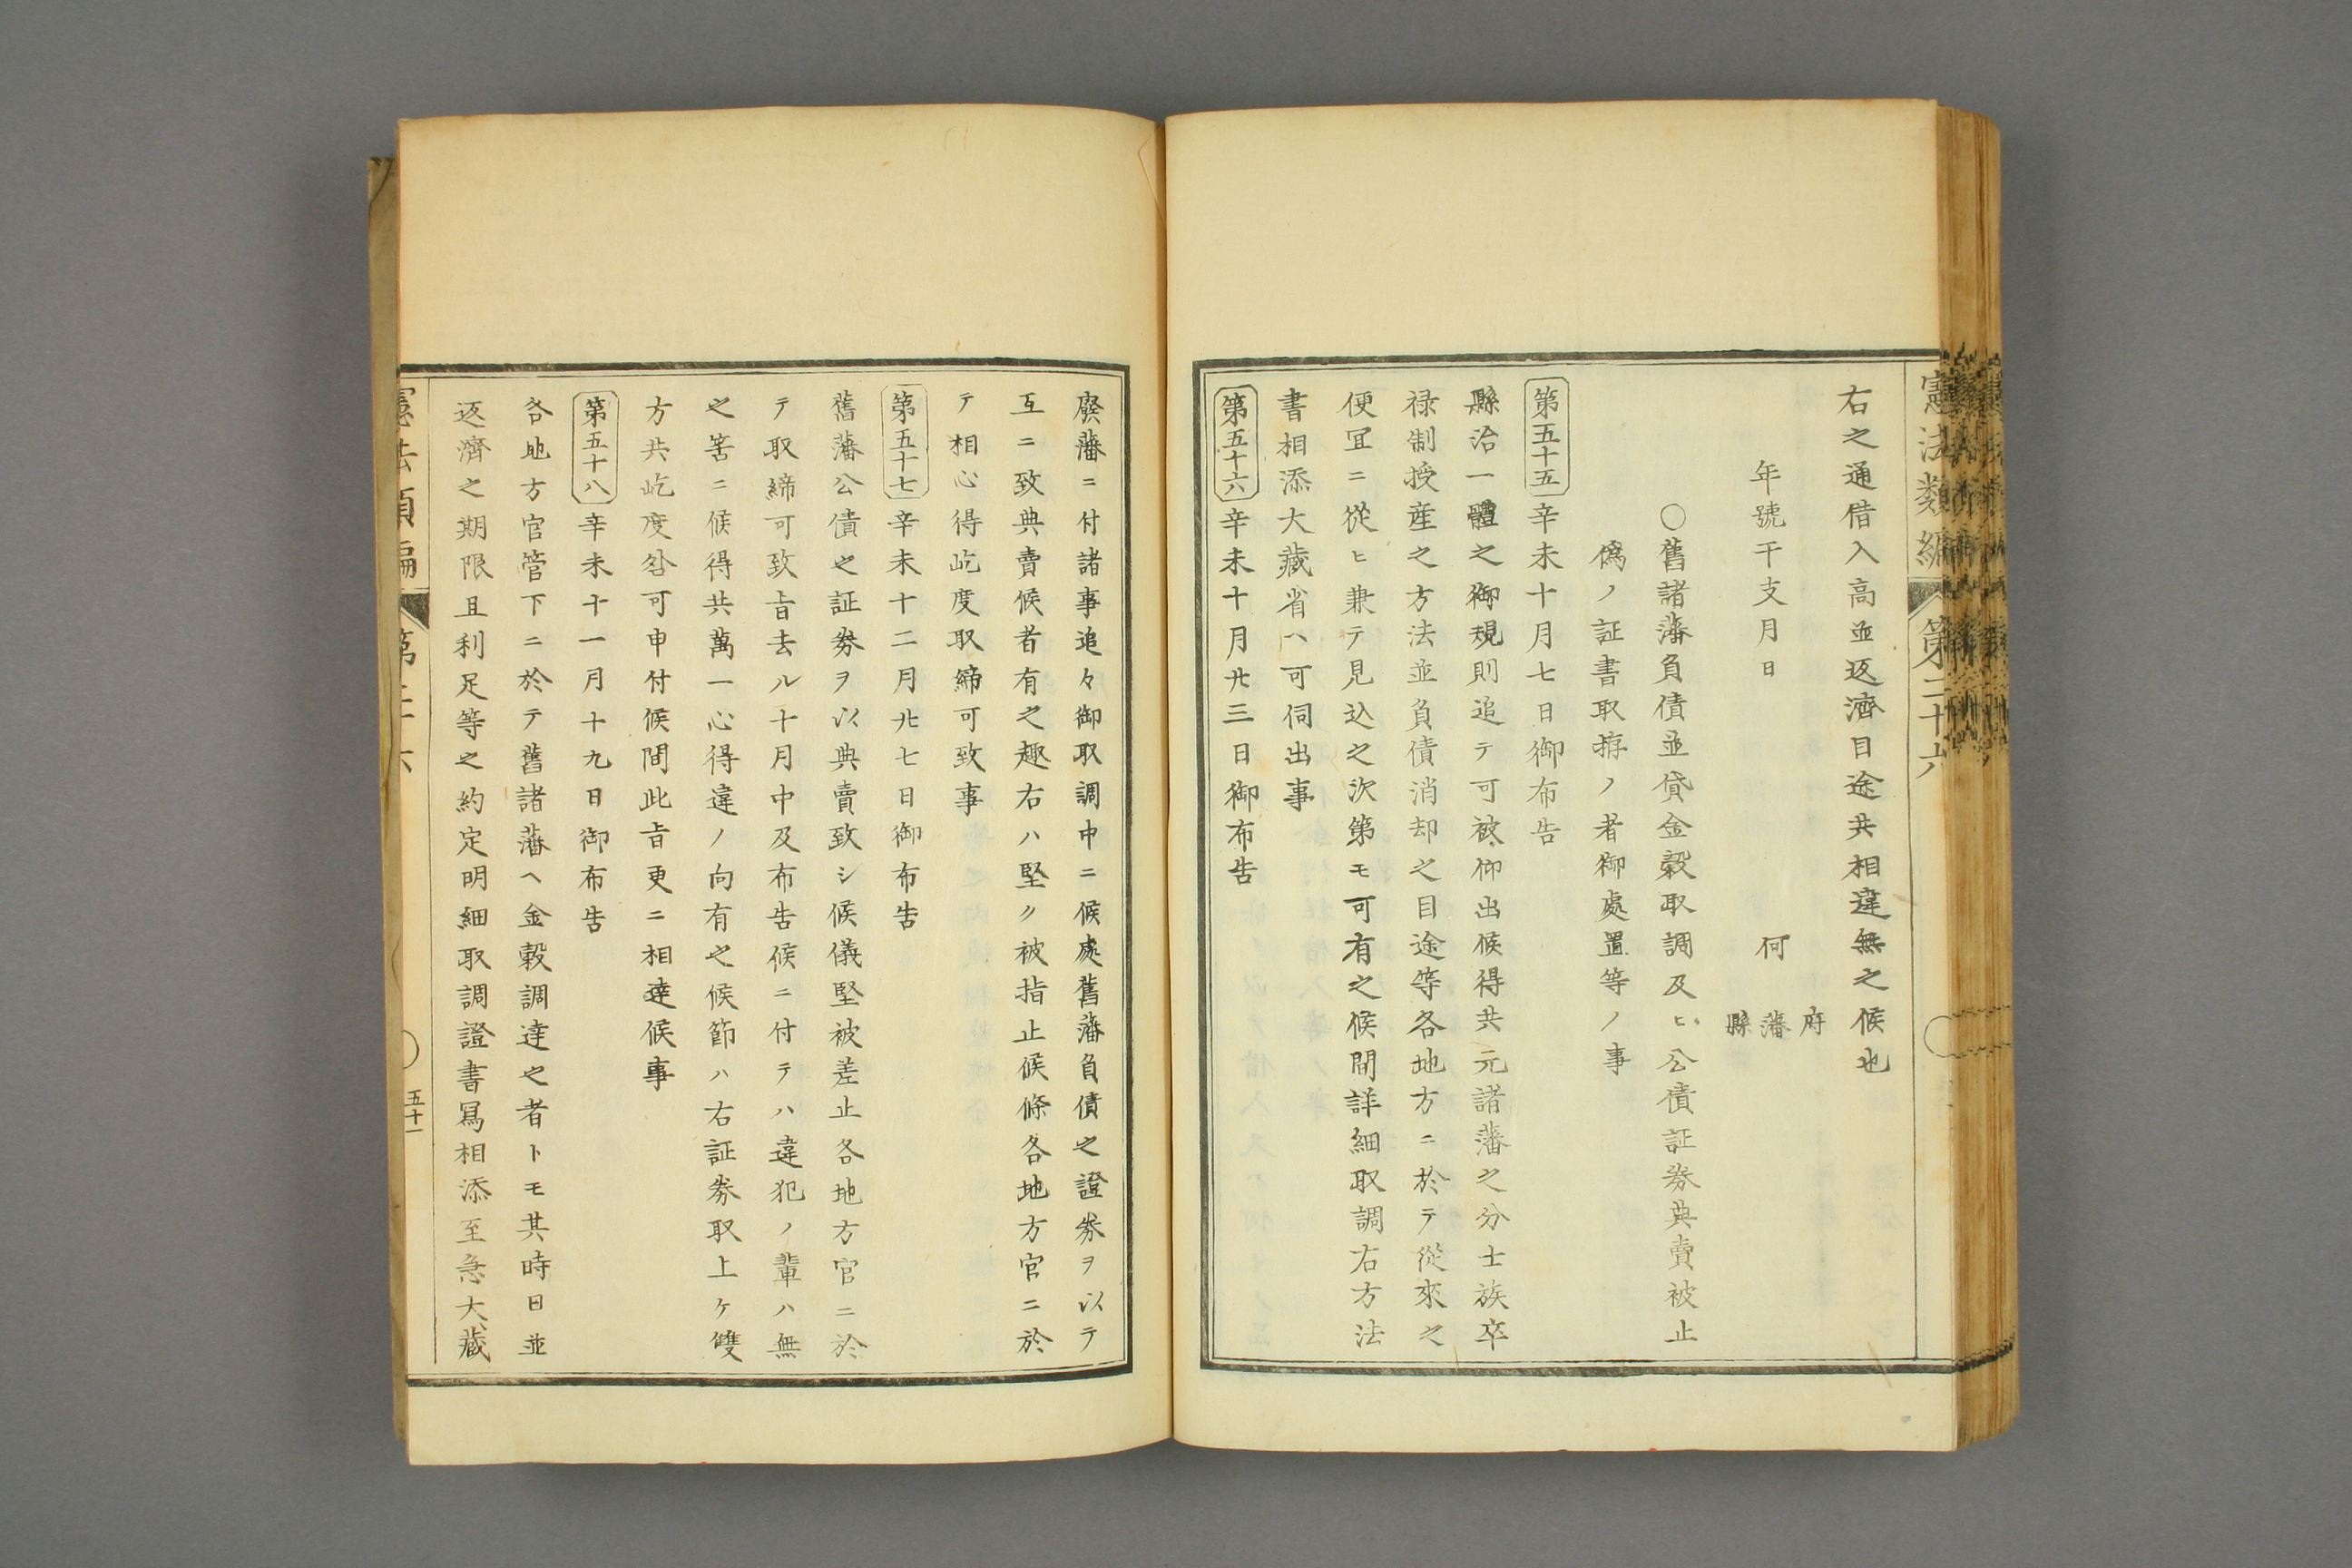 憲法類編 第二十六
右之通借入高並返濟目途共相違無之候也
年號干支月日
何 府藩縣
○舊諸藩負債並貸金穀取調及ヒ公債証券典賣被止
僞ノ証書取拵ノ者御處置等ノ事
第五十五 辛未十月七日御布告
縣治一體之御規則追テ可被仰出候得共元諸藩之分士族卒
禄制授産之方法並負債消却之目途等各地方ニ於テ從來之
便冝ニ從ヒ兼テ見込之次第モ可有之候間詳細取調右方法
書相添大藏省ハ可伺出事
第五十六 辛未十月廿三日御布告
廢藩ニ付諸事追々御取調中ニ候處舊藩負債之證券ヲ以テ
互ニ致典賣候者有之趣右ハ堅ク被指止候條各地方官ニ於
テ相心得屹度取締可致事
第五十七 辛未十二月廿七日御布告
舊藩公債之証券ヲ以典賣致シ候儀堅被差止各地方官ニ於
テ取締可致旨去ル十月中及布告候ニ付テハ違犯ノ輩ハ無
之筈ニ候得共萬一心得違ノ向有之候節ハ右証券取上ケ雙
方共屹度咎可申付候間此旨更ニ相達候事
第五十八 辛未十一月十九日御布告
各地方官管下ニ於テ舊諸藩ヘ金穀調達之者トモ其時日並
返濟之期限且利足等之約定明細取調證書冩相添至急大藏
五十一